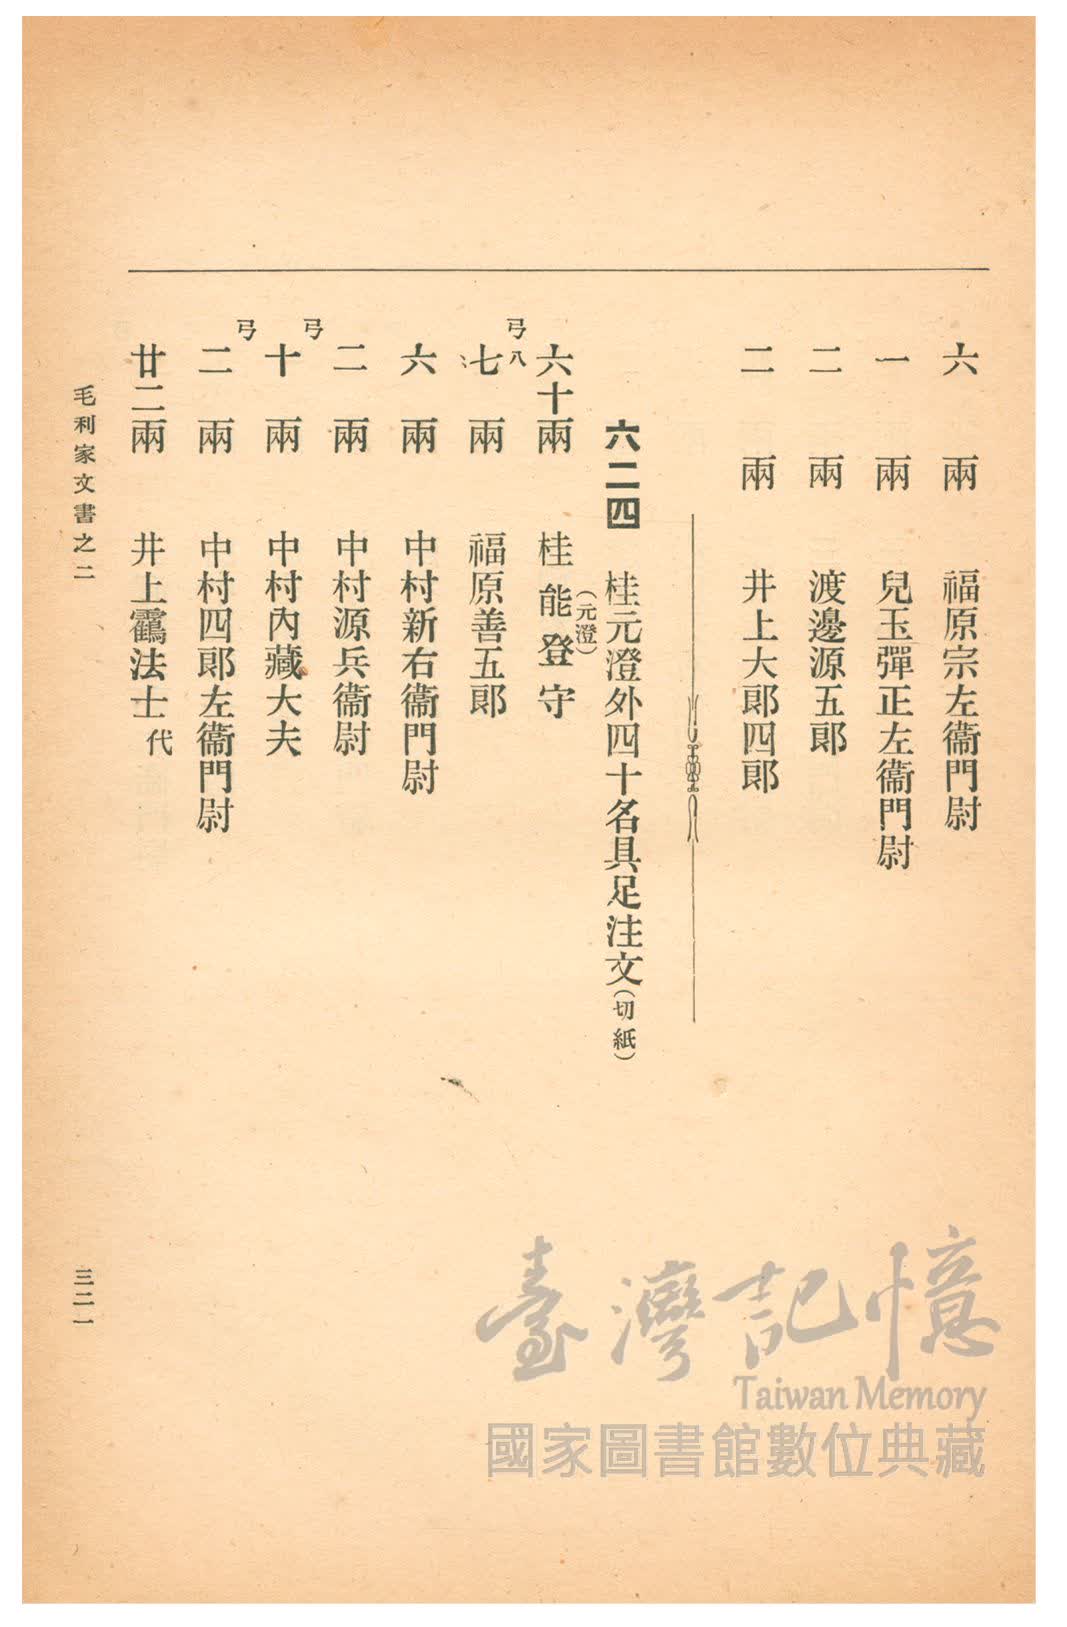 六　兩　福原宗左衞門尉
一　兩　兒玉彈正左衞門尉
二　兩　渡邊源五郞
二　兩　井上大郞四郞
六二四　桂元澄外四十名具足注文(切紙)
(元澄)
六十兩　桂能登守
弓八
七　兩　福原善五郞
六　兩　中村新右衞門尉
二　兩　中村源兵衞尉
弓
十　兩　中村內藏大夫
弓
二　兩　中村四郞左衞門尉
廿二兩　井上靍法士代
毛利家文書之二
三二一
臺灣記憶
Taiwan Memory
國家圖書館數位典藏